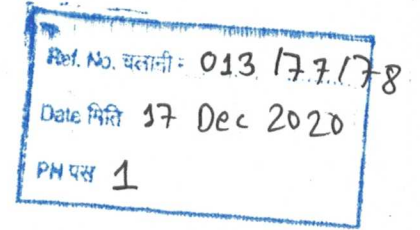 Ref. No. चलानी : 013/77/78
Date मिति 17 Dec 2020
PN पस 1